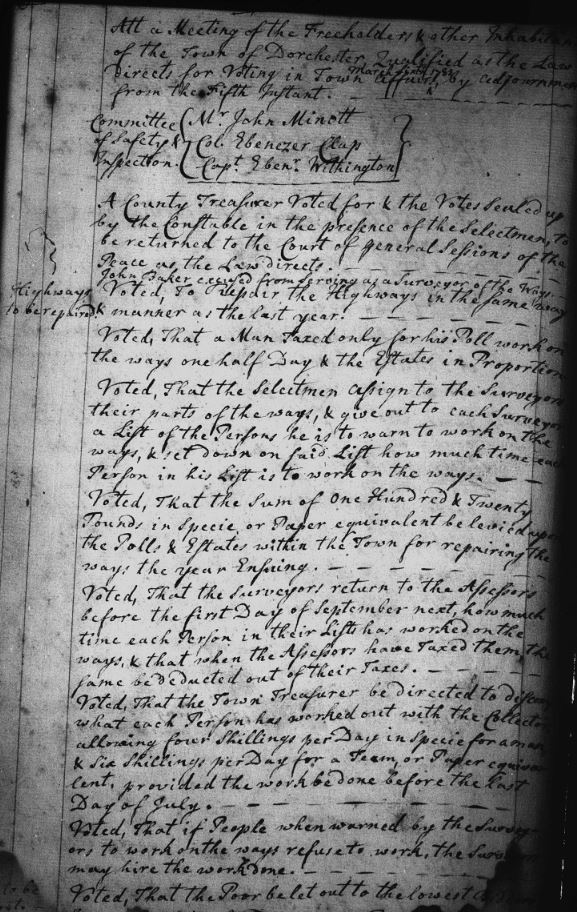 Att a Meeting of the Freeholders & other Inhabitan
of the Town of Dorchester, Qualified as the Law
Directs for Voting in Town affairs, by adjournmen
from the Fifth Instant.
Committee of Safety & Inspection.
Mr. John Minott
Col. Ebenezer Clap
Capt. Ebenr. Withington
A County Treasurer Voted for & the Votes Sealed up
by the Constable in the presence of the Selectmen, to
be returned to the Court of general Sessions of the
Peace as the Law directs.
John Baker excused from serving as a Surveyor of the Ways.
Highways to be repaired.
Voted, To repair the Highways in the same way
& manner as the last year.
Voted, That a Man Taxed only for his Poll work on
the ways one half Day & the Estates in Proportion
Voted, That the Selectmen assign to the Surveyors
their parts of the ways, & give out to each Surveyor
a List of the Persons he is to warn to work on the
ways, & set down on said List how much time each
Person in his List is to work on the ways.
Voted, That the Sum of One Hundred & Twenty
Pounds in Specie, or Paper equivalent be levied upon
the Polls & Estates within the Town for repairing the
ways the year Ensuing.
Voted, That the Surveyors return to the Assessors
before the first Day of September next, how much
time each Person in their Lists has worked on the
ways, & that when the Assessors have Taxed them, the
same be deducted out of their Taxes.
Voted, That the Town Treasurer be directed to
what each Person has worked out with the Collecto
allowing four Shillings per Day in Specie for a man
& Six Shillings per Day for a Team, or Paper equiva
lent, provided the work be done before the last
Day of July.
Voted, That if People when warned by the Survey
ors to work on the ways refuse to work, the Sur
may hire the work done.
to be
Voted, That the Poor be let out to the lowest